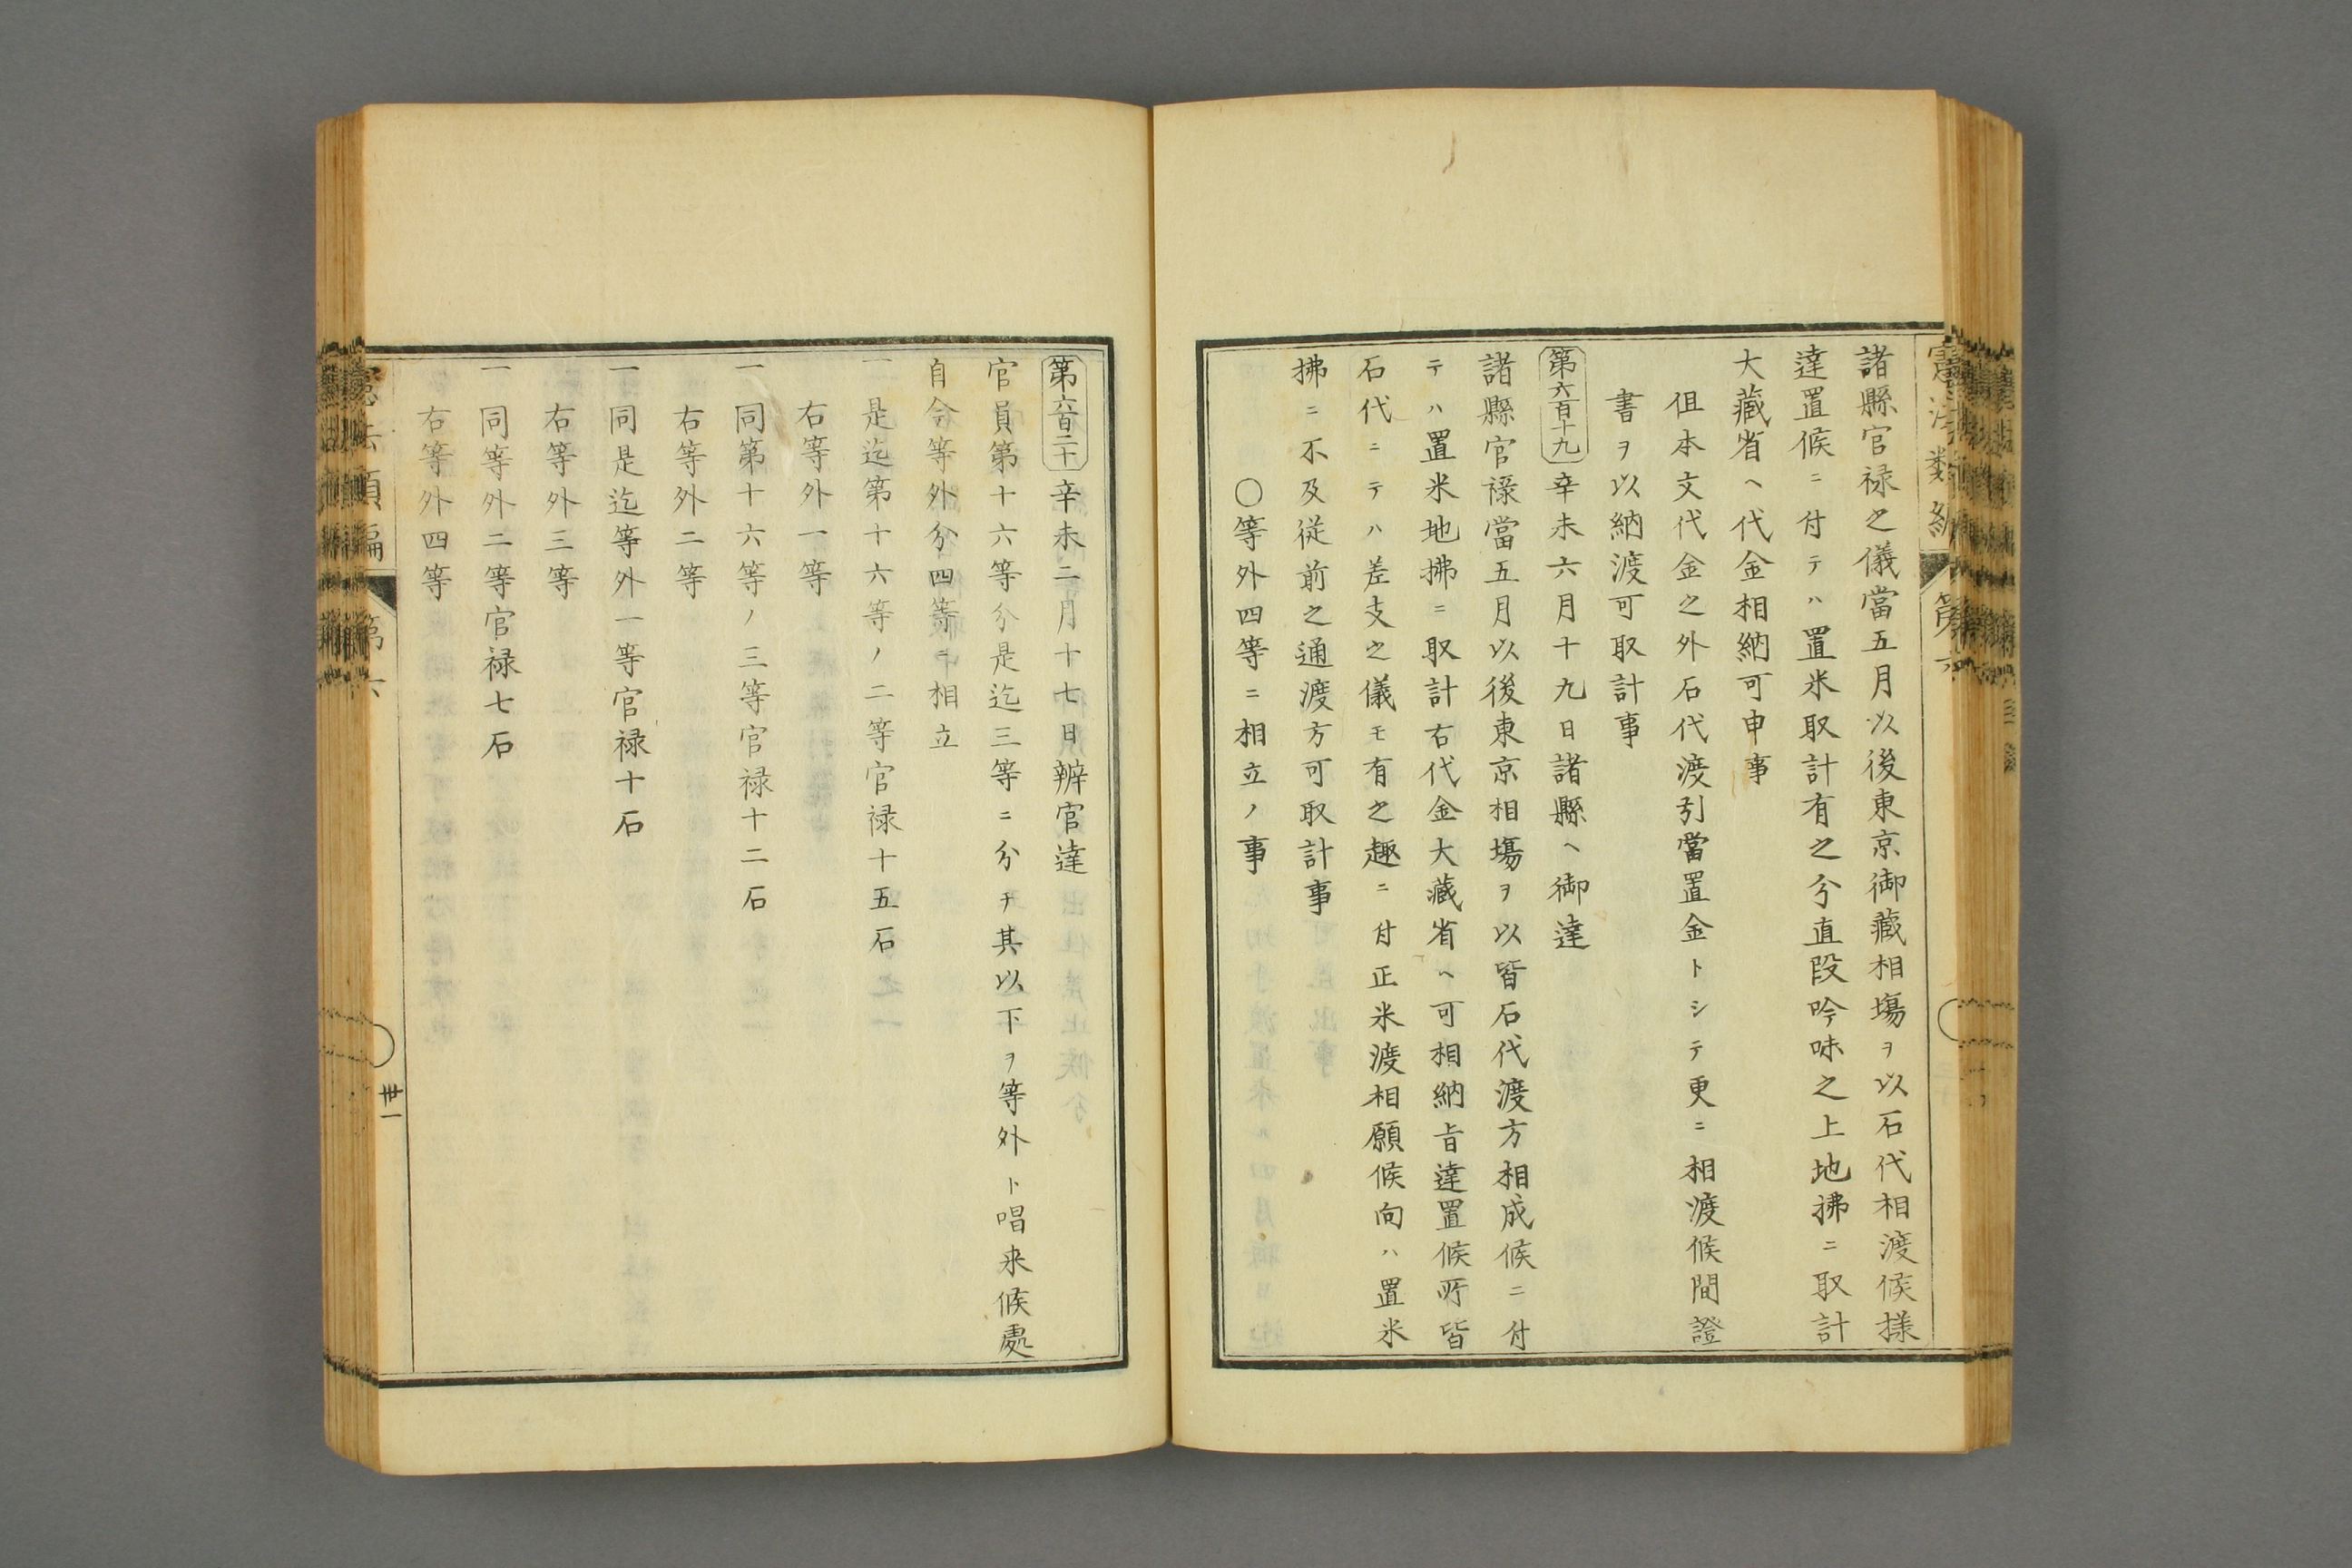 諸縣官禄之儀當五月以後東京御藏相塲ヲ以石代相渡候樣
達置候ニ付テハ置米取計有之分直段吟味之上地拂ニ取計
大藏省ヘ代金相納可申事
但本文代金之外石代渡引當置金トシテ更ニ相渡候間證
書ヲ以納渡可取計事
第六百十九 辛未六月十九日諸縣ヘ御達
諸縣官禄當五月以後東京相塲ヲ以皆石代渡方相成候ニ付
テハ置米地拂ニ取計右代金大藏省ヘ可相納旨達置候所皆
石代ニテハ差支之儀モ有之趣ニ付正米渡相願候向ハ置米
拂ニ不及従前之通渡方可取計事
〇等外四等ニ相立ノ事
第六百二十 辛未二月十七日辨官達
官員第十六等分是迄三等ニ分チ其以下ヲ等外ト唱来候處
自今等外分四等ニ相立
一是迄第十六等ノ二等官禄十五石
右等外一等
一同第十六等ノ三等官禄十二石
右等外二等
一同是迄等外一等官禄十石
右等外三等
一同等外二等官禄七石
右等外四等
憲法類編 第六 廿一